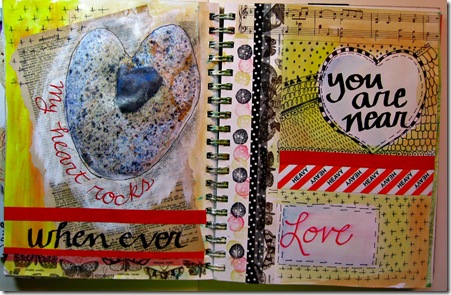 my heart rocks
when ever
you
are
near
HEAVY HEAVY HEAVY HEAVY HEAVY HEAVY
Love